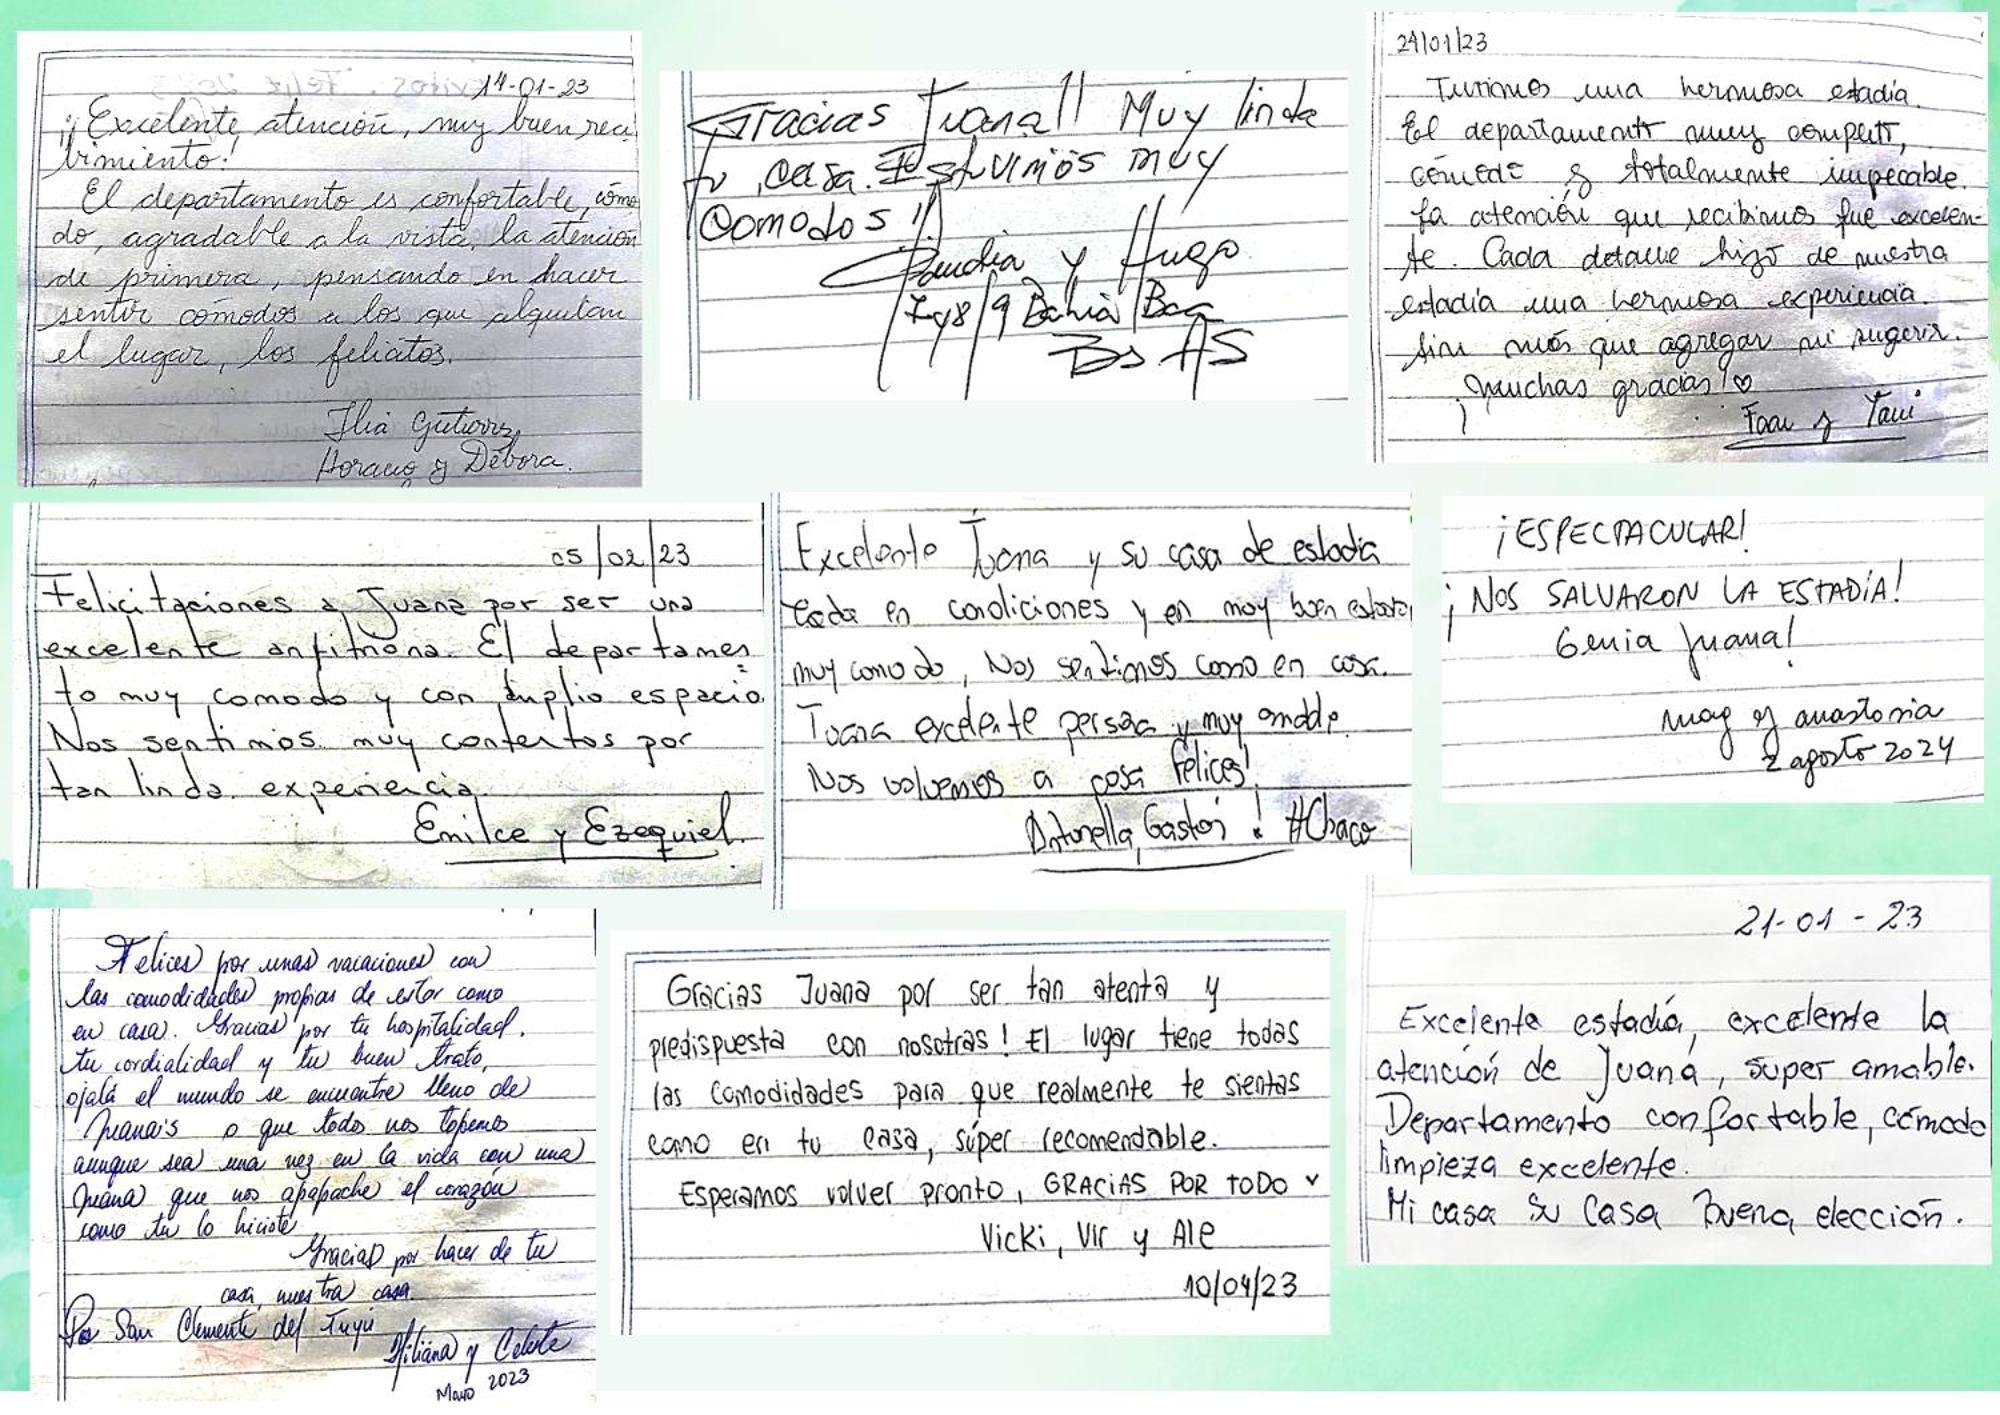 14-01-23
¡¡Excelente atención, muy buen reci
bimiento!
El departamento es confortable, cómo
do, agradable a la vista, la atención
de primera, pensando en hacer
sentir cómodos a los que alquilan
el lugar, los felicitos.
Ilia Gutierrez,
Horacio y Débora.
Gracias Juana!! Muy linda
tu casa. Estuvimos muy
Comodos!!
Claudia y Hugo
7 y 8/9 Bahia Bca
Bs AS
24/01/23
Tuvimos una hermosa estadía.
El departamento muy completo,
cómodo y totalmente impecable.
La atención que recibimos fue excelen-
te. Cada detalle hizo de nuestra
estadía una hermosa experiencia.
Sin más que agregar ni sugerir.
¡muchas gracias! ♡
y Tami
05/02/23
Felicitaciones a Juana por ser una
excelente anfitriona. El departamen
to muy comodo y con amplio espacio.
Nos sentimos muy contentos por
tan linda experiencia.
Emilce y Ezequiel.
Excelente Juana y su casa de estadia
toda en condiciones y en muy buen estado,
muy comodo, Nos sentimos como en casa.
Juana excelente persona y muy amable.
Nos volvemos a casa felices!
Antonella, Gastón! #Chaco
¡ESPECTACULAR!
¡NOS SALVARON LA ESTADÍA!
Genia Juana!
Mag y anastonia
2 agosto 2024
Felices por unas vacaciones con
las comodidades propias de estar como
en casa. Gracias por tu hospitalidad,
tu cordialidad y tu buen trato,
ojalá el mundo se encuentre lleno de
Juana's o que todos nos topemos
aunque sea una vez en la vida con una
Juana que nos apapache el corazón
como tú lo hiciste
Gracias por hacer de tu
casa, nuestra casa.
San Clemente del Tuyú
y Celeste
Mayo 2023
Gracias Juana por ser tan atenta y
predispuesta con nosotras! El lugar tiene todas
las comodidades para que realmente te sientas
como en tu casa, súper recomendable.
Esperamos volver pronto, GRACIAS POR TODO ♥
Vicki, Vir y Ale
10/04/23
21-01-23
Excelente estadía, excelente la
atención de Juana, super amable.
Departamento confortable, cómodo
limpieza excelente.
Mi casa Su Casa Buena elección.